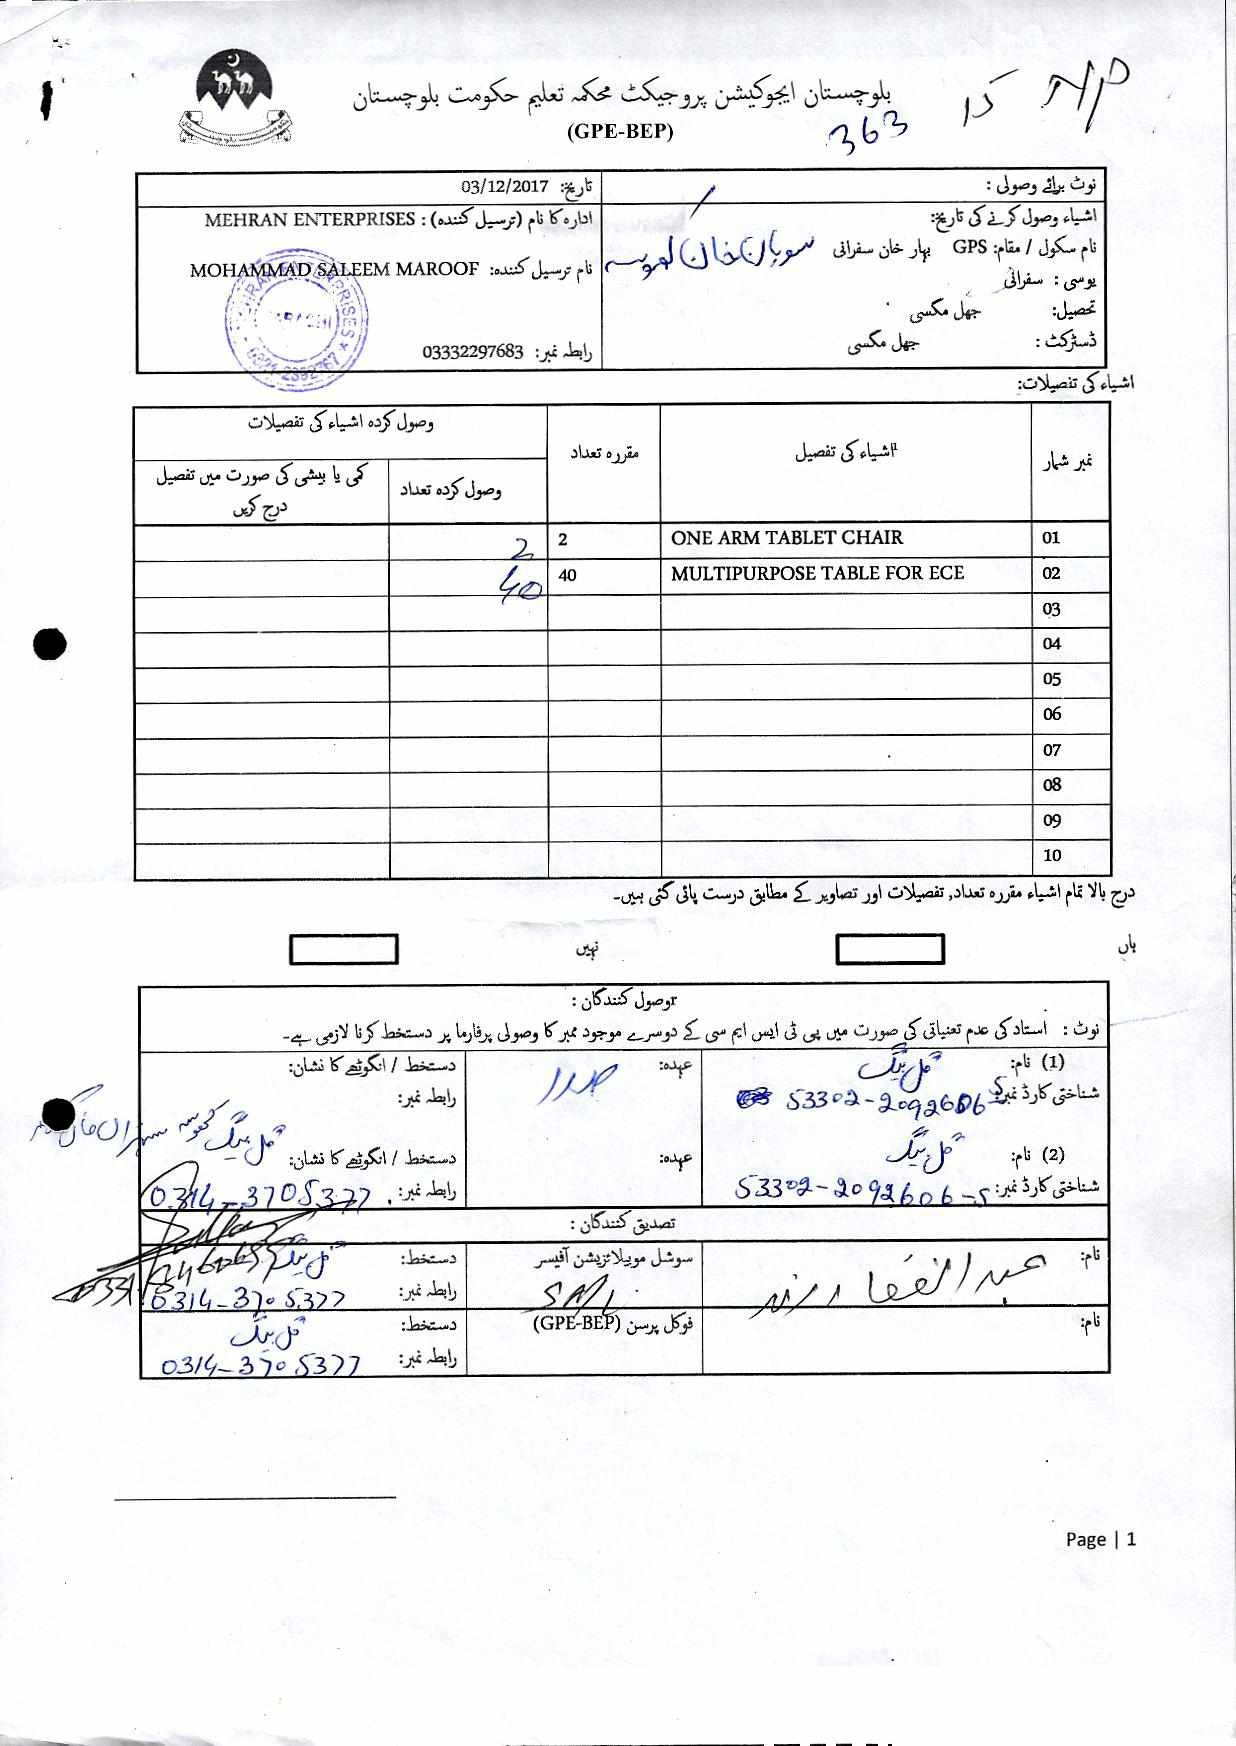 بلوچستان ایجوکیشن پروجیکٹ محکمہ تعلیم حکومت بلوچستان
(GPE-BEP)
363
نوٹ برائے وصولی :
تاریخ: 03/12/2017
اشیاء وصول کرنے کی تاریخ:
ادارہ کا نام (ترسیل کنندہ) : MEHRAN ENTERPRISES
نام سکول / مقام: GPS بہار خان سفرانی
نام ترسیل کنندہ: MOHAMMAD SALEEM MAROOF
یو سی : سفرانی
تحصیل: جھل مگسی
ڈسٹرکٹ : جھل مگسی
رابطہ نمبر: 03332297683
اشیاء کی تفصیلات:
نمبر شمار
اشیاء کی تفصیل
مقررہ تعداد
وصول کردہ اشیاء کی تفصیلات
وصول کردہ تعداد
کمی یا بیشی کی صورت میں تفصیل درج کریں
01 ONE ARM TABLET CHAIR 2 2
02 MULTIPURPOSE TABLE FOR ECE 40 40
03
04
05
06
07
08
09
10
درج بالا تمام اشیاء مقررہ تعداد, تفصیلات اور تصاویر کے مطابق درست پائی گئی ہیں۔
ہاں
نہیں
وصول کنندگان :
نوٹ : استاد کی عدم تعیناتی کی صورت میں پی ٹی ایس ایم سی کے دوسرے موجود ممبر کا وصولی پرفارما پر دستخط کرنا لازمی ہے۔
(1) نام: گل بیگ عہدہ: صدر دستخط / انگوٹھے کا نشان:
شناختی کارڈ نمبر: 53302-2092606-5 رابطہ نمبر:
گل بیگ
(2) نام: گل بیگ عہدہ: دستخط / انگوٹھے کا نشان:
شناختی کارڈ نمبر: 53302-2092606-5 رابطہ نمبر: 0314-3705377
تصدیق کنندگان :
نام: عبدالغفار رند سوشل موبیلائزیشن آفیسر دستخط: گل بیگ
رابطہ نمبر: 0314-3705377
نام: فوکل پرسن (GPE-BEP) دستخط: گل بیگ
رابطہ نمبر: 0314-3705377
Page | 1